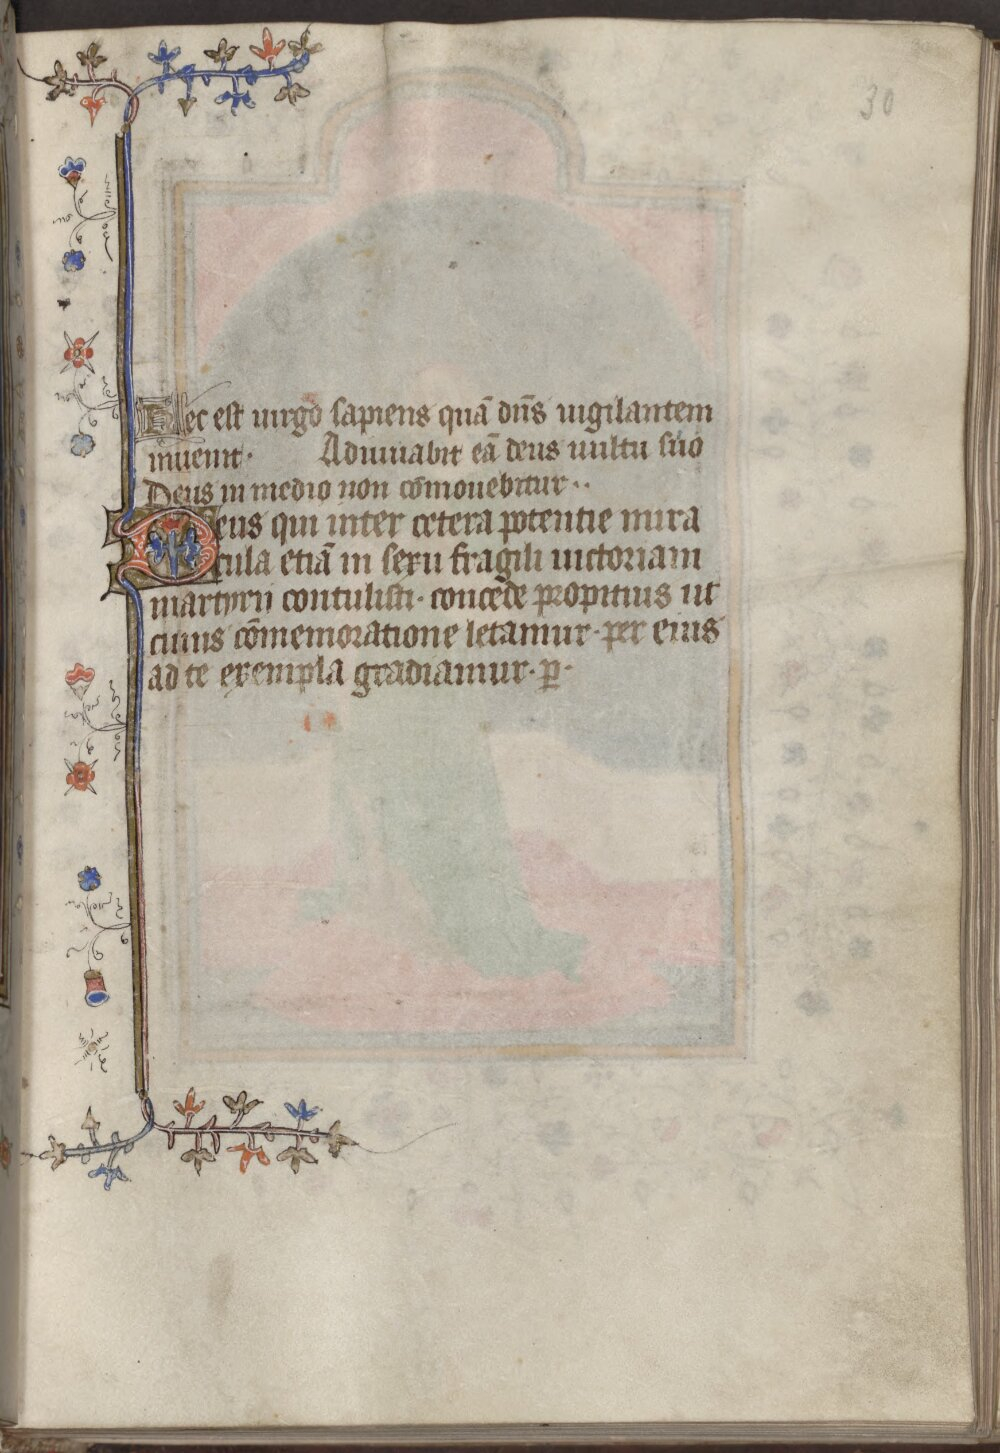 30
Hec est uirgo sapiens quā dn̄s uigilantem
inuenit · Adiuuabit eā deus uultu suo
Deus in medio non cōmouebitur ··
Deus qui inter cetera potentie mira
cula etiā in sexu fragili uictoriam
martyrii contulisti · concede propitius ut
cuius cōmemoratione letamur · per eius
ad te exempla gradiamur · p̲ ·